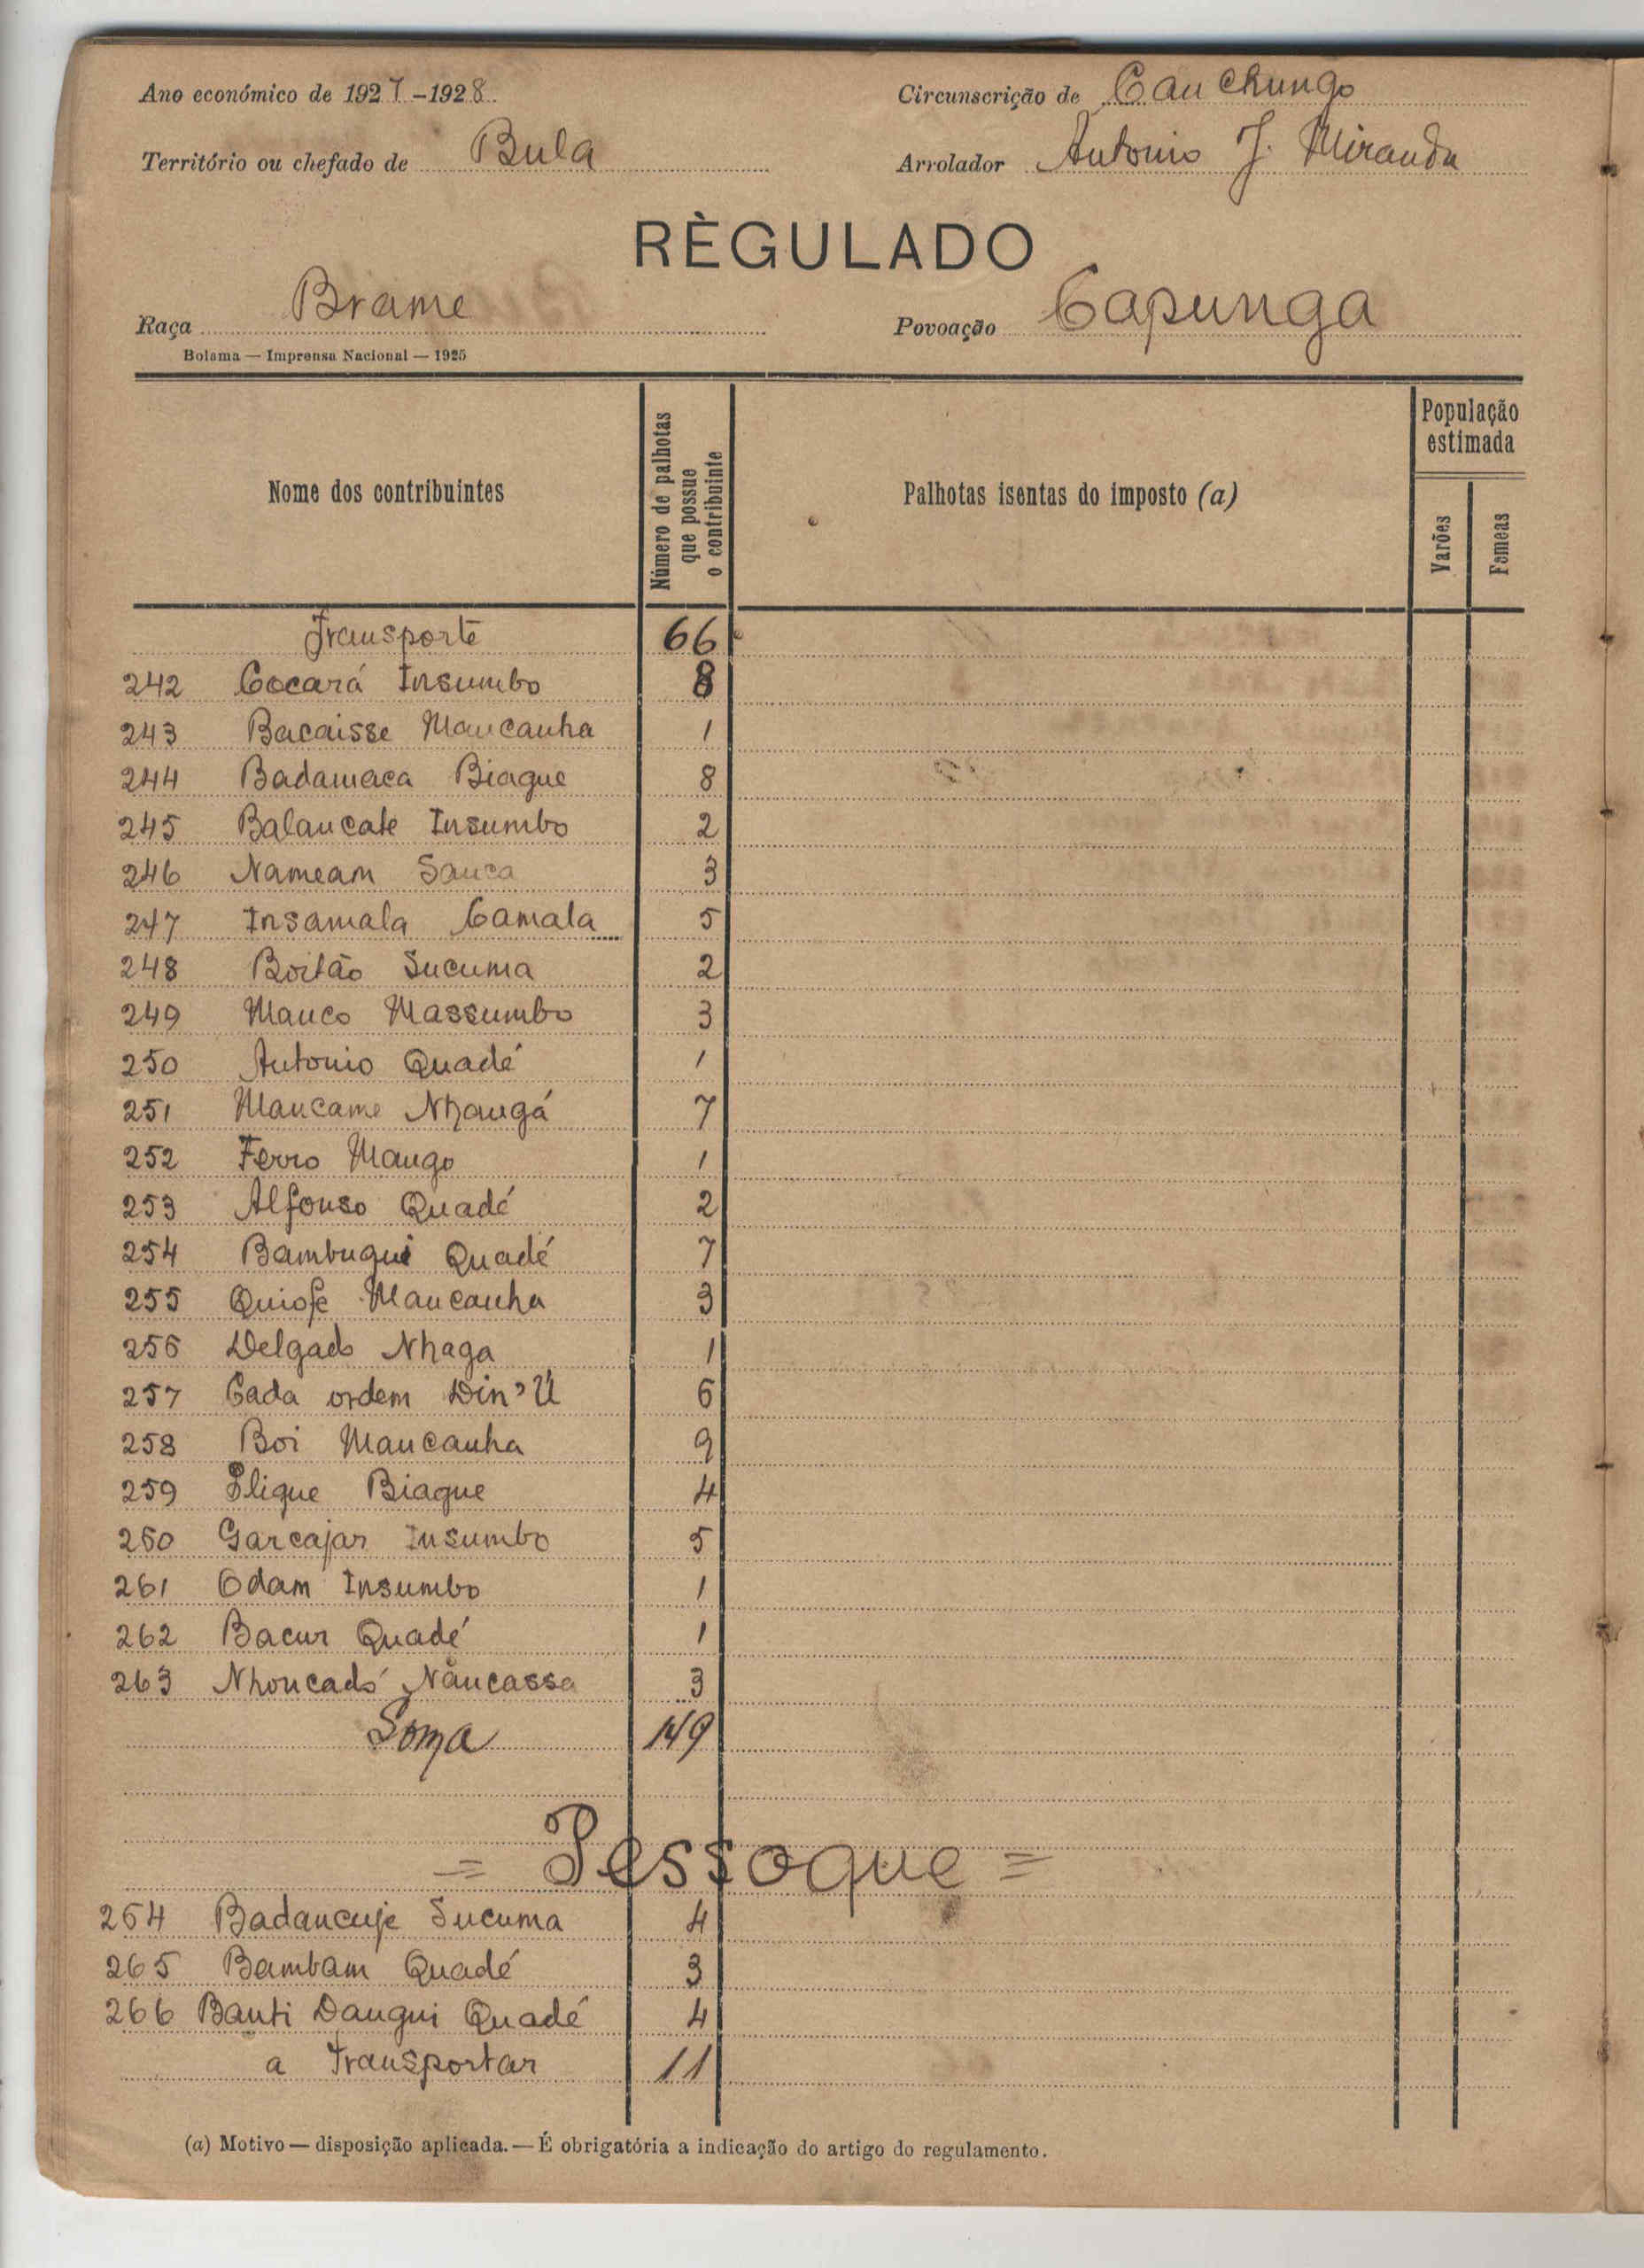 Ano económico de 1927-1928
Circunscrição de Canchungo
Território ou chefado de Bula
Arrolador Antonio J. Miranda
RÈGULADO
Raça Brame
Povoação Capunga
Bolama — Imprensa Nacional — 1925
Nome dos contribuintes
Número de palhotas
que possue
o contribuinte
Palhotas isentas do imposto (a)
População
estimada
Varões
Femeas
Transporte 66
242 Cocará Insumbo 8
243 Bacaisse Mancanha 1
244 Badamaca Biague 8
245 Balancate Insumbo 2
246 Nameam Sanca 3
247 Insamala Camala 5
248 Boitão Sucuma 2
249 Manco Massumbo 3
250 Antonio Quadé 1
251 Mancame Nhangá 7
252 Ferro Mango 1
253 Alfonso Quadé 2
254 Bambugui Quadé 7
255 Quiofe Mancanha 3
256 Delgado Nhaga 1
257 Cada ordem Din'Ú 6
258 Boi Mancanha 9
259 Slique Biague 4
260 Garcajar Insumbo 5
261 Odam Insumbo 1
262 Bacur Quadé 1
263 Nhoncadó Nancassa 3
Soma 149
= Pessoque =
264 Badancuje Sucuma 4
265 Bambam Quadé 3
266 Banti Dangui Quadé 4
a Transportar 11
(a) Motivo — disposição aplicada. — É obrigatória a indicação do artigo do regulamento.